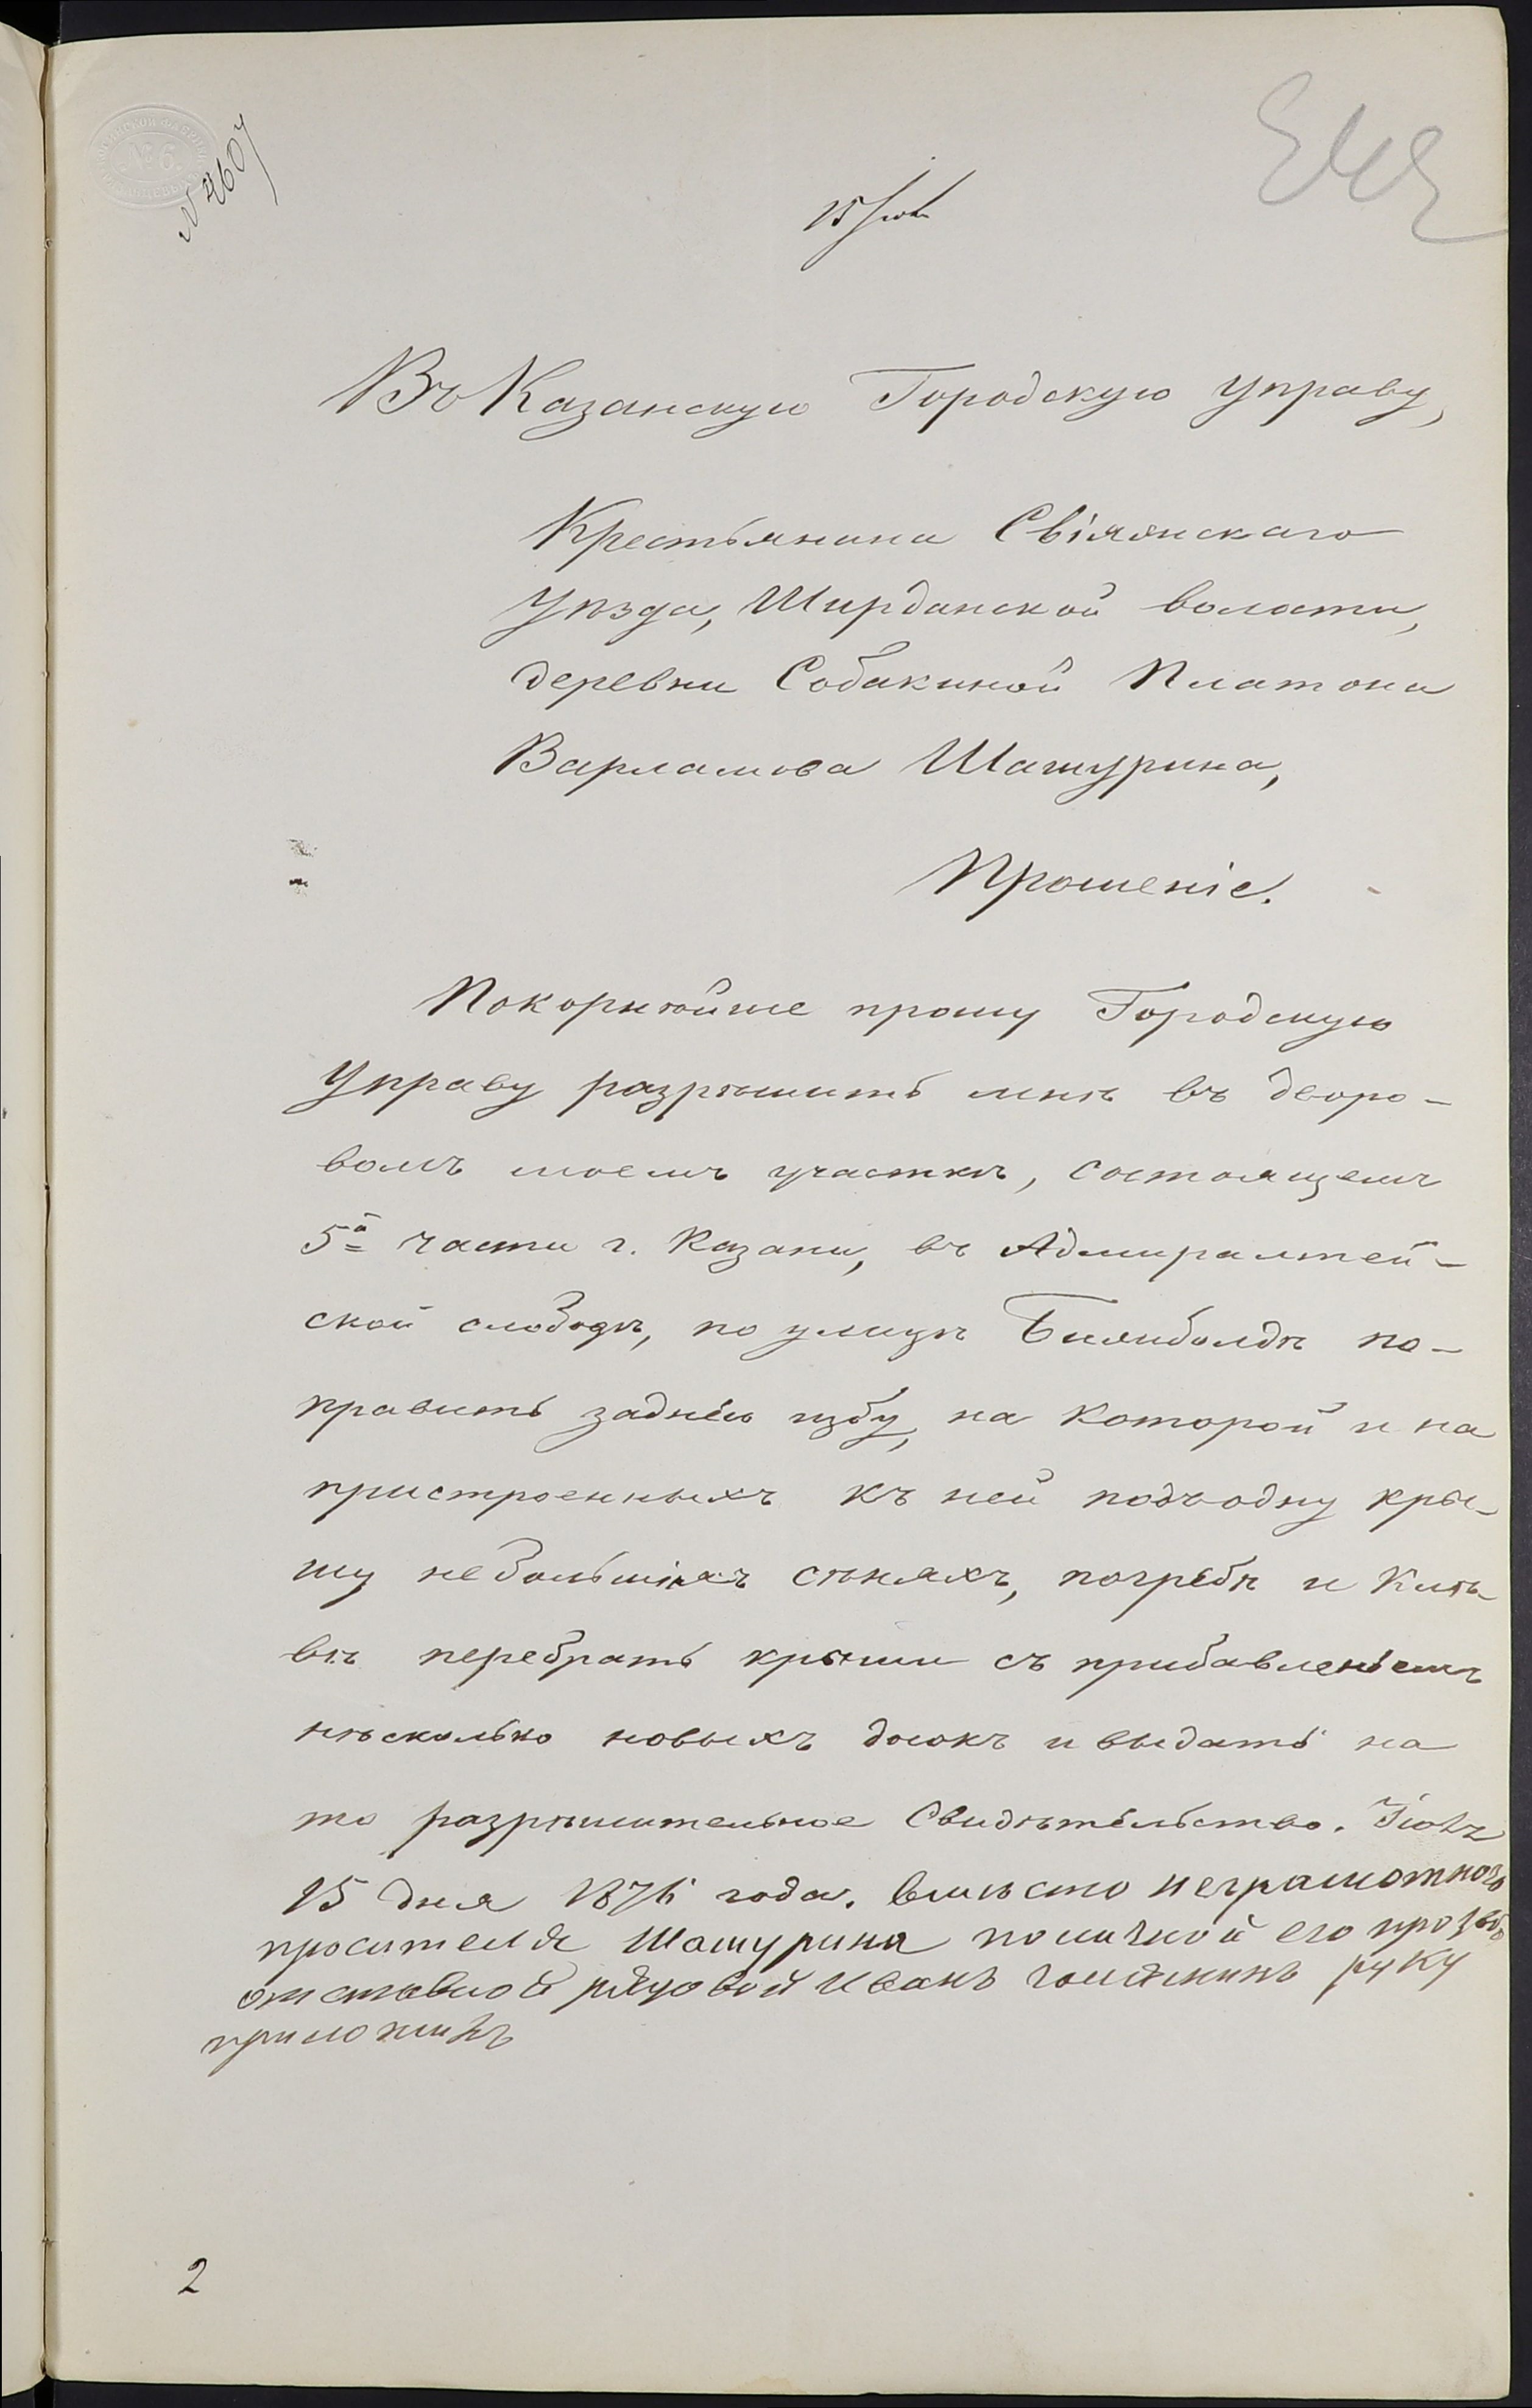 № 4607
15 Іюл
Въ Казанскую Городскую Управу,
Крестьянина Свіяжскаго
Уѣзда, Ширданской волости,
деревни Собакиной Платона
Варламова Шашурина,
Прошеніе.
Покорнѣйше прошу Городскую
Управу разрѣшить мнѣ въ дворо-
вомъ моемъ участкѣ, состоящемъ
5й части г. Казани, въ Адмиралтей-
ской слободѣ, по улицѣ Бишбалдѣ по-
править заднею избу, на которой и на
пристроенныхъ къ ней подъ одну кры-
шу небольшихъ сѣняхъ, погребѣ и Клѣ-
вѣ перебрать крыши съ прибавленіемъ
нѣсколько новыхъ досокъ и выдать на
то разрѣшительное Свидѣтельство. Іюля
15 дня 1876 года. вмѣсто неграмотного
просителя Шашурина по личной его прозбѣ
отставной рядовой Иванъ руку
приложилъ
2